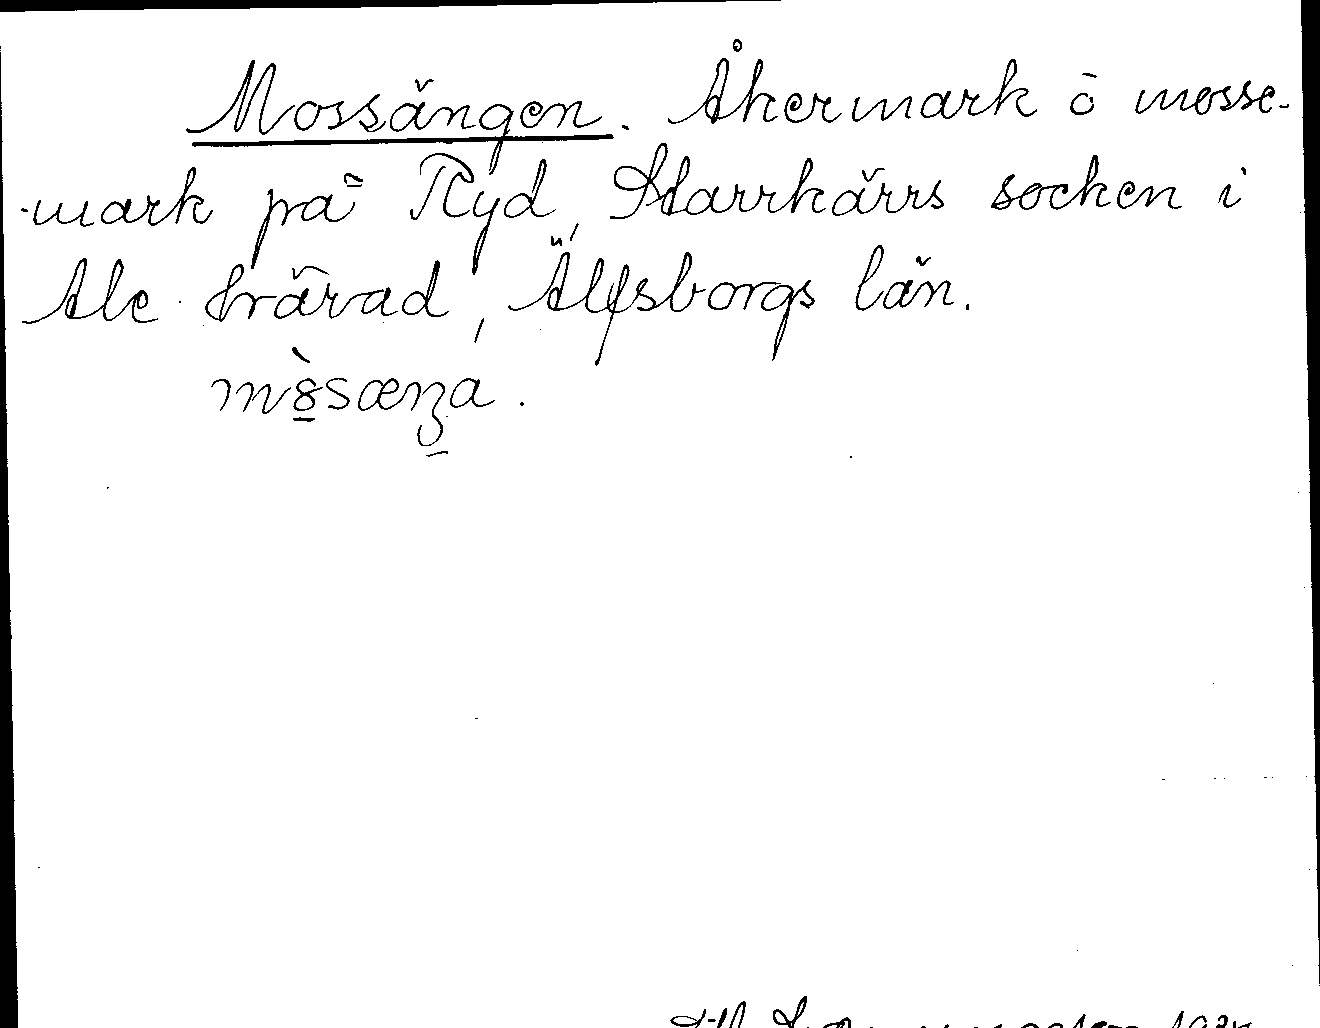 Mossängen. Åkermark ō mosse-
-mark på Ryd, Starrkärrs socken i
Ale härad, Älfsborgs län.